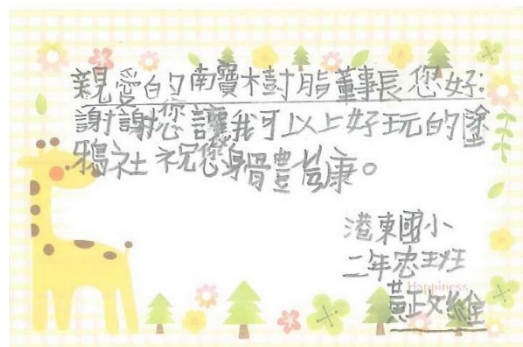 親愛的南寶樹脂董事長您好:
謝謝您讓我可以上好玩的塗
鴉社祝您身體健康。
港東國小
二年忠班
Happiness
黃政維